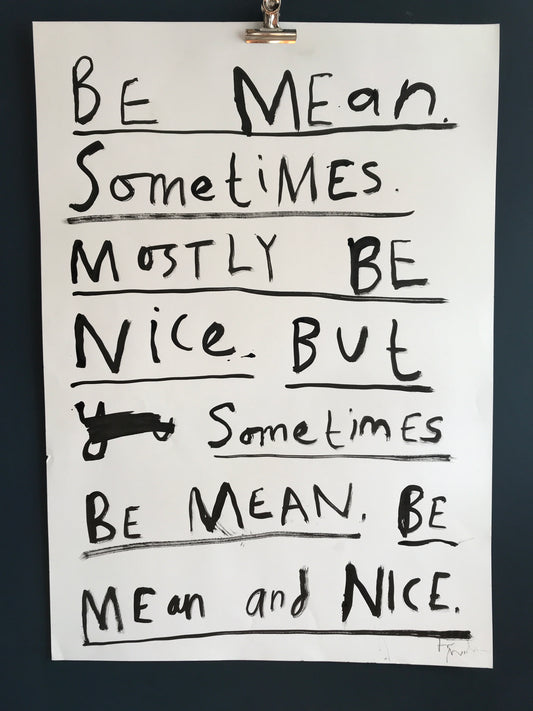 BE MEan.
SometiMES.
MOSTLY BE
Nice. BUt
SometimEs
BE MEAN. BE
MEan and NICE.